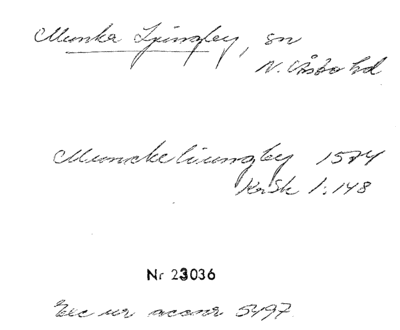 Munka Ljungby, sn
N. Åsbo hd
Munckeliungby 1584
KrSk 1:148
Nr 23036
Exc ur accnr 5497